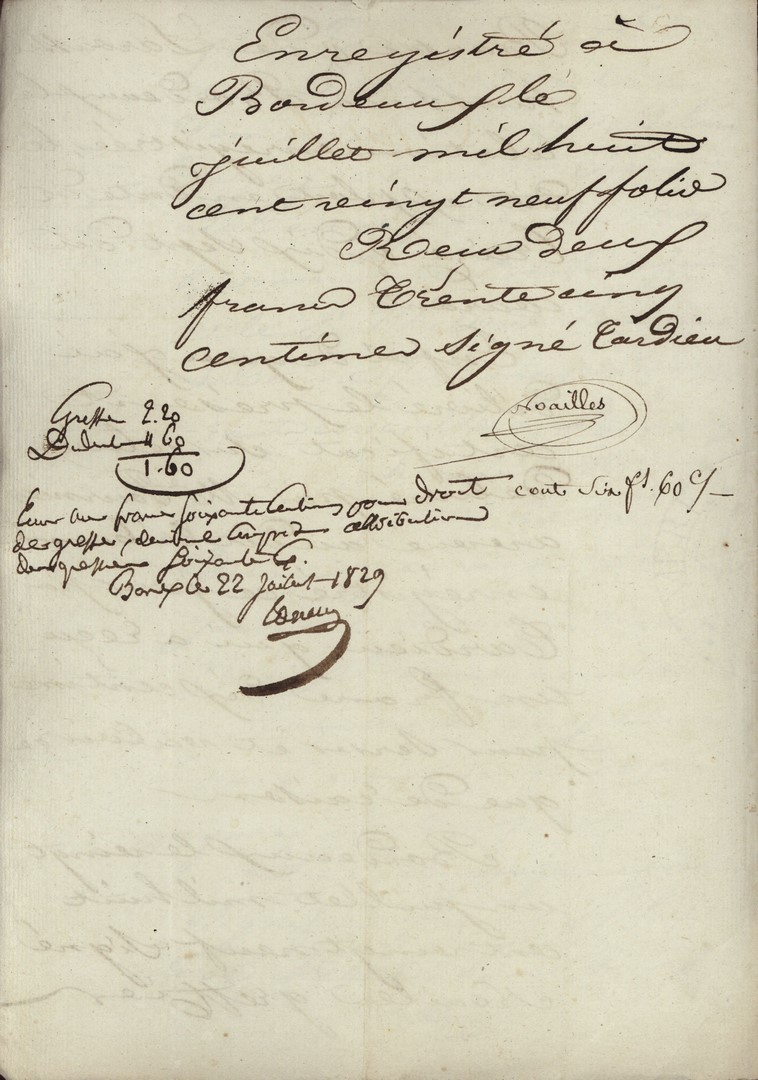 Enregistré à
Bordeaux le
juillet mil huit
cent vingt neuf folio
Reçu deux
francs trente cinq
centimes signé Tardieu
Noailles
Greffe 2.20
60
1.60
un franc soixante centimes pour droit cout six fs. 60 c/
de greffe, decime compris attribution
du greffier soixante c.
Bordx le 22 Juillet 1829